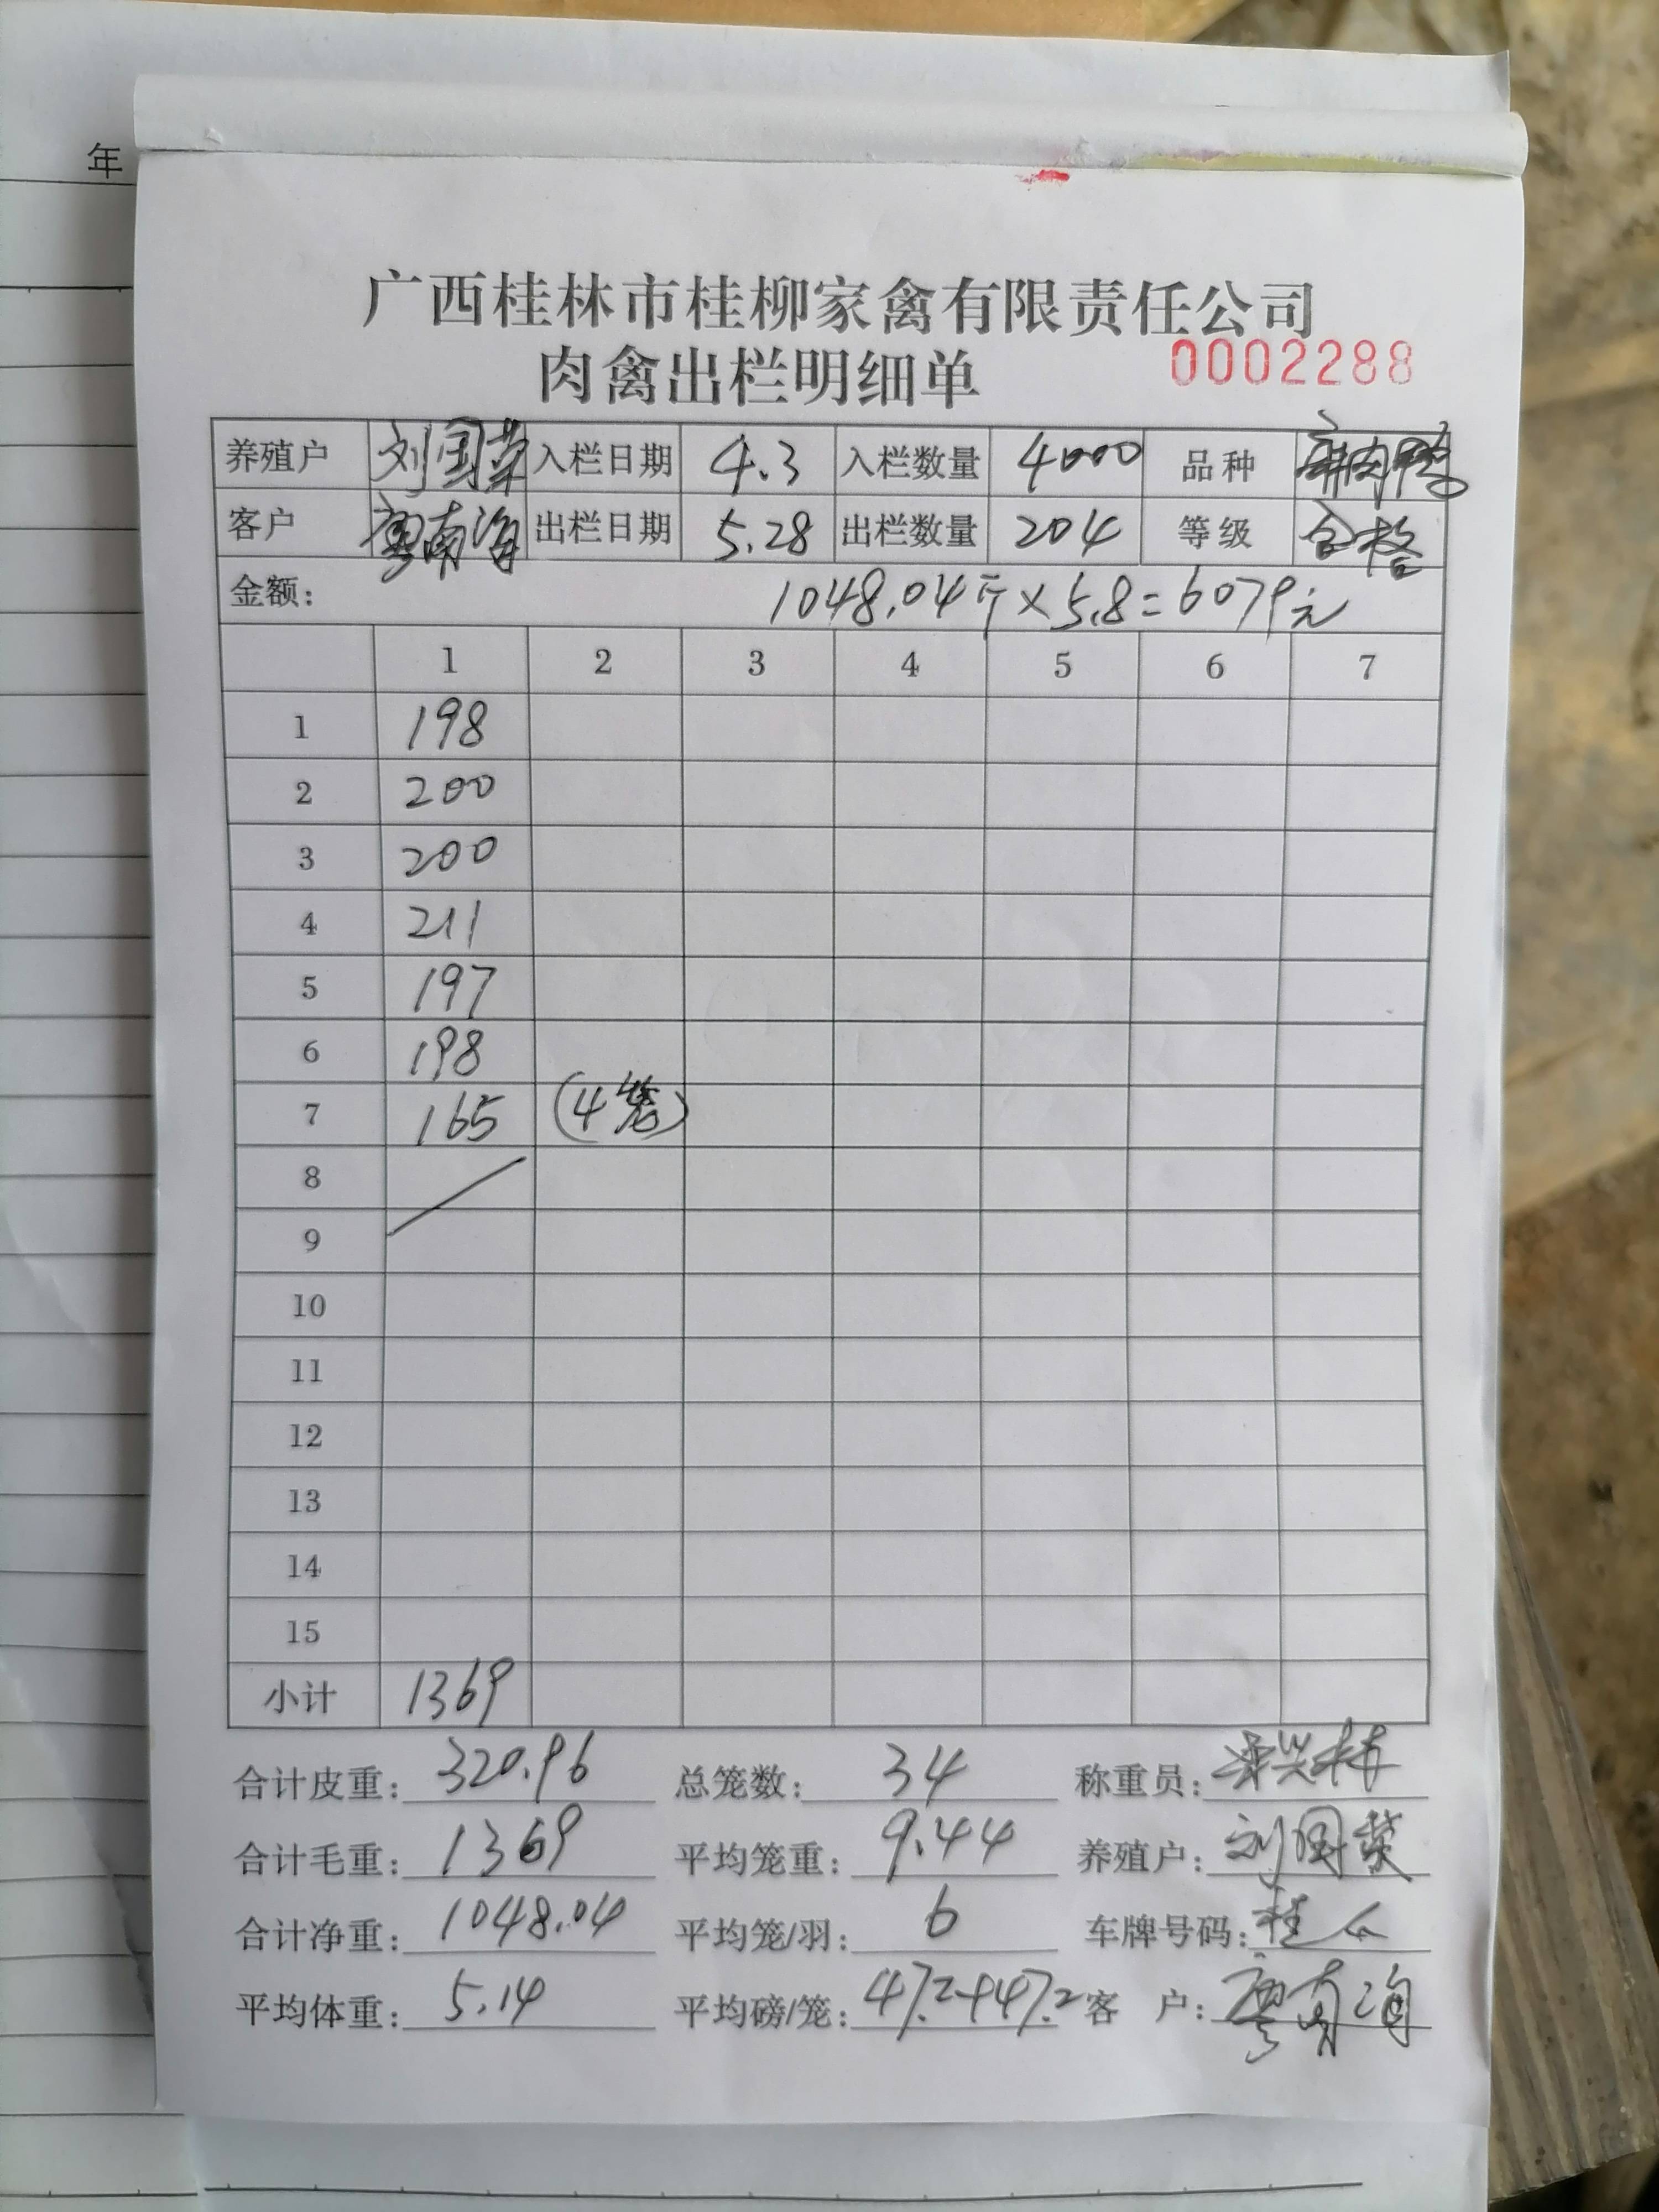 年
广西桂林市桂柳家禽有限责任公司
肉禽出栏明细单 0002288
养殖户 刘国荣 入栏日期 4.3 入栏数量 4000 品种
客户 廖南海 出栏日期 5.28 出栏数量 204 等级 合格
金额: 1048.04斤×5.8=6079元
1 2 3 4 5 6 7
1 198
2 200
3 200
4 211
5 197
6 198
7 165 (4笼)
8
9
10
11
12
13
14
15
小计 1369
合计皮重: 320.96 总笼数: 34 称重员:
合计毛重: 1369 平均笼重: 9.44 养殖户: 刘国荣
合计净重: 1048.04 平均笼/羽: 6 车牌号码: 桂
平均体重: 5.14 平均磅/笼: 47.2+47.2 客 户: 廖南海